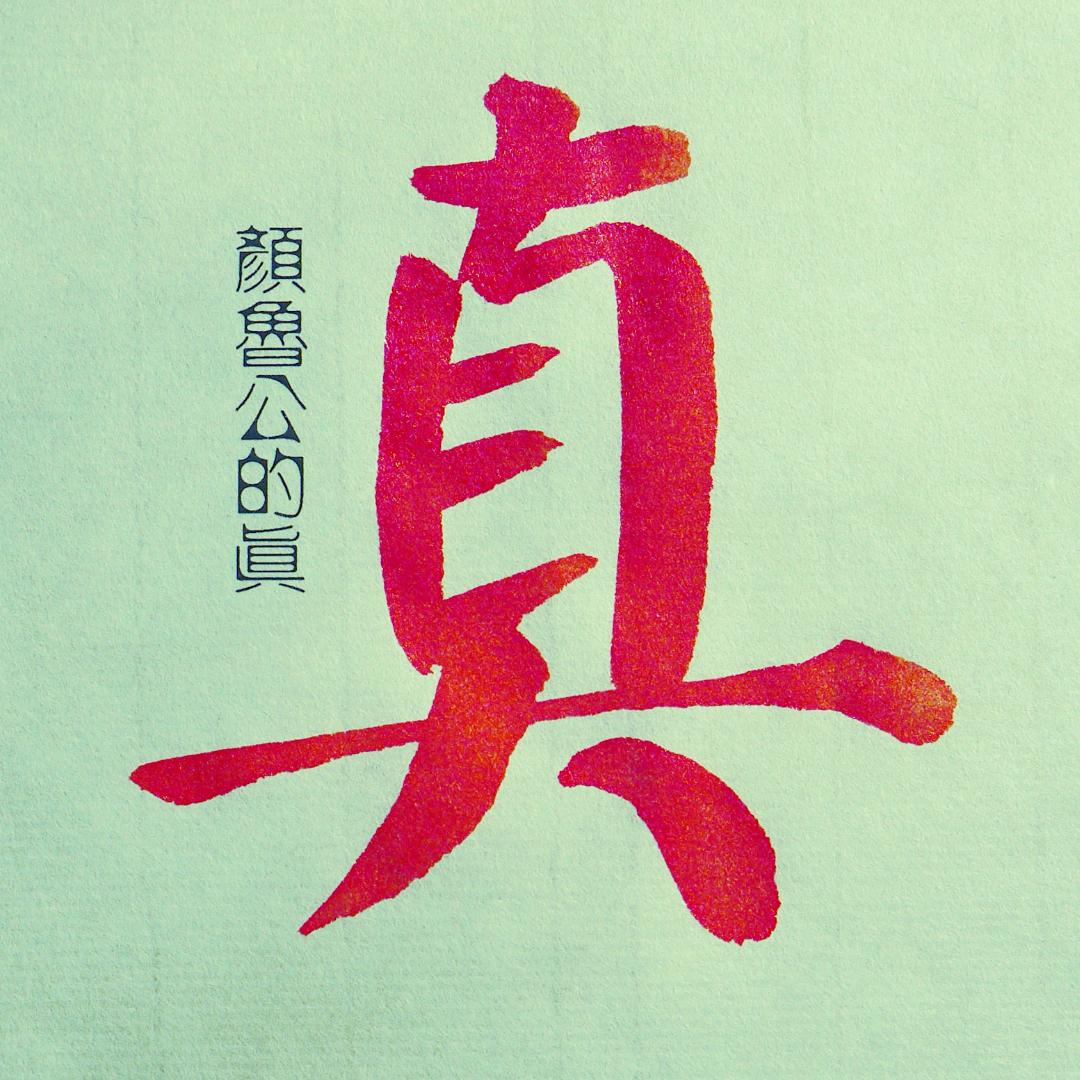 真
顏魯公的眞